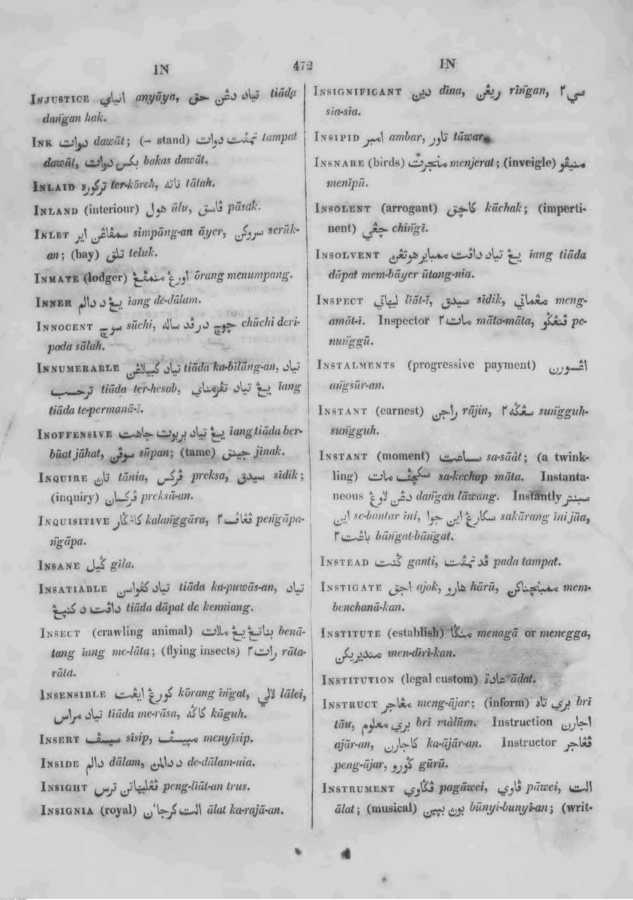 IN 472 IN
INJUSTICE انياي anyāya, تياد دغن حق tiāda
dañgan hak.
INK دوات dawāt; (– stand) تمڤت دوات tampat
dawāt, بكس دوات bakas dawāt.
INLAID تركوره ter-kōreh, تاته tātah.
INLAND (interiour) هول ūlu, ڤاسق pāsak.
INLET سمڤاڠن اير simpāng-an āyer, سروكن serūk-
an; (bay) تلق teluk.
INMATE (lodger) اورڠ منمڤڠ ōrang menumpang.
INNER يڠ د دالم iang de-dālam.
INNOCENT سوچ sūchi, چوچ در ڤد ساله chūchi deri-
pada sālah.
INNUMERABLE تياد كبيلاڠن tiāda ka-bilāng-an, تياد
ترحسب tiāda ter-hesab, يڠ تياد تڤرمناي iang
tiāda te-permanā-i.
INOFFENSIVE يڠ تياد بربوت جاهت iang tiāda ber-
būat jāhat, سوڤن sūpan; (tame) جينق jinak.
INQUIRE تان tānia, ڤركس preksa, سيدق sidik;
(inquiry) ڤركسان preksā-an.
INQUISITIVE كالڠڬار kalanggāra, ڤڠاڤ٢ peñgāpa-
ñgāpa.
INSANE ڬيل gila.
INSATIABLE تياد كڤواسن tiāda ka-puwās-an, تياد
داڤت د كنيڠ tiāda dāpat de kenniang.
INSECT (crawling animal) بناتڠ يڠ ملات benā-
tang iang me-lāta; (flying insects) رات٢ rāta-
rāta.
INSENSIBLE كورڠ ايڠت kōrang iñgat, لالي lālei,
تياد مراس tiāda me-rāsa, كاڬه kāguh.
INSERT سيسڤ sisip, مييسڤ menyīsip.
INSIDE دالم dālam, د دالمن de-dālam-nia.
INSIGHT ڤڠلياتن ترس peng-liāt-an trus.
INSIGNIA (royal) الت كرجان ālat ka-rajā-an.
INSIGNIFICANT دين dīna, ريڠن riñgan, سي٢
sia-sia.
INSIPID امبر ambar, تاور tāwar.
INSNARE (birds) منجرت menjerat; (inveigle) منيڤو
menīpū.
INSOLENT (arrogant) كاچق kāchak; (imperti-
nent) چڠي chiñgī.
INSOLVENT يڠ تياد داڤت ممباير هوتڠن iang tiāda
dāpat mem-bāyer ūtang-nia.
INSPECT لياتي liāt-ī, سيدق sidik, مڠماتي meng-
amāt-i. Inspector مات٢ māta-māta, ڤنڠڬو pe-
nunggū.
INSTALMENTS (progressive payment) اڠسورن
añgsūr-an.
INSTANT (earnest) راجن rājin, سڠڬه٢ sunggguh-
sungguh.
INSTANT (moment) ساعت sa-sāāt; (a twink-
ling) سكيچڤ مات sa-kechap māta. Instanta-
neous دڠن لاوڠ dañgan lāwang. Instantly سبنتر
اين se-bantar īni, سكارڠ اين جوا sakārang īni jūa,
باڠت٢ bāñgat-bāñgat.
INSTEAD ڬنت ganti, ڤد تمڤت pada tampat.
INSTIGATE اجق ajok, هارو hārū, ممبنچناكن mem-
benchanā-kan.
INSTITUTE (establish) منڬا menagā or menegga,
منديريكن men-diri-kan.
INSTITUTION (legal custom) عادة ādat.
INSTRUCT مڠاجر meng-ājar; (inform) بري تاو brī
tāu, بري معلوم brī mālūm. Instruction اجارن
ajār-an, كاجارن ka-ājār-an. Instructor ڤڠاجر
peng-ājar, ڬورو gūrū.
INSTRUMENT ڤڬاوي pagāwei, ڤاوي pāwei, الت
ālat; (musical) بون بين būnyi-bunyī-an; (writ-